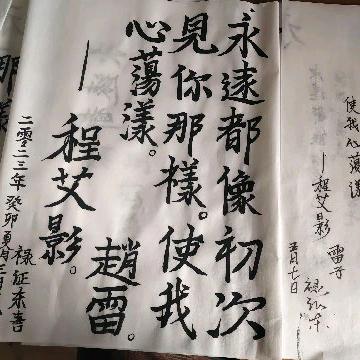 使我心蕩漾
—程艾影
五月七日
永遠都像初次
見你那樣。使我
心蕩漾。
—程艾影。
趙雷。
二零二三年癸卯夏月
那樣